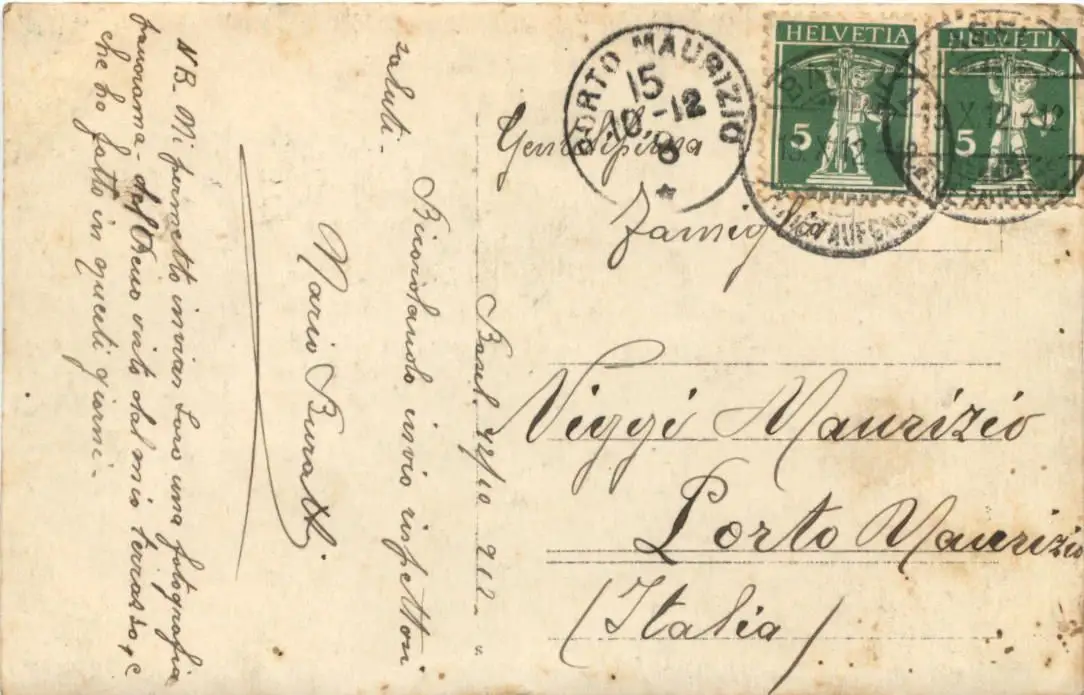 Basel. 12/10 912 -
Ricordando invio rispettosi
saluti.
Mario Buratti
NB. Mi permetto inviar Loro una fotografia
panorama- del Reno visto dal mio terrasso, e
che ho fatto in questi giorni -
HELVETIA
5
HELVETIA
5
PORTO MAURIZIO
15
10-12
8
Gentilissima
Famiglia
Viggi Maurizio
Porto Maurizio
(Italia)